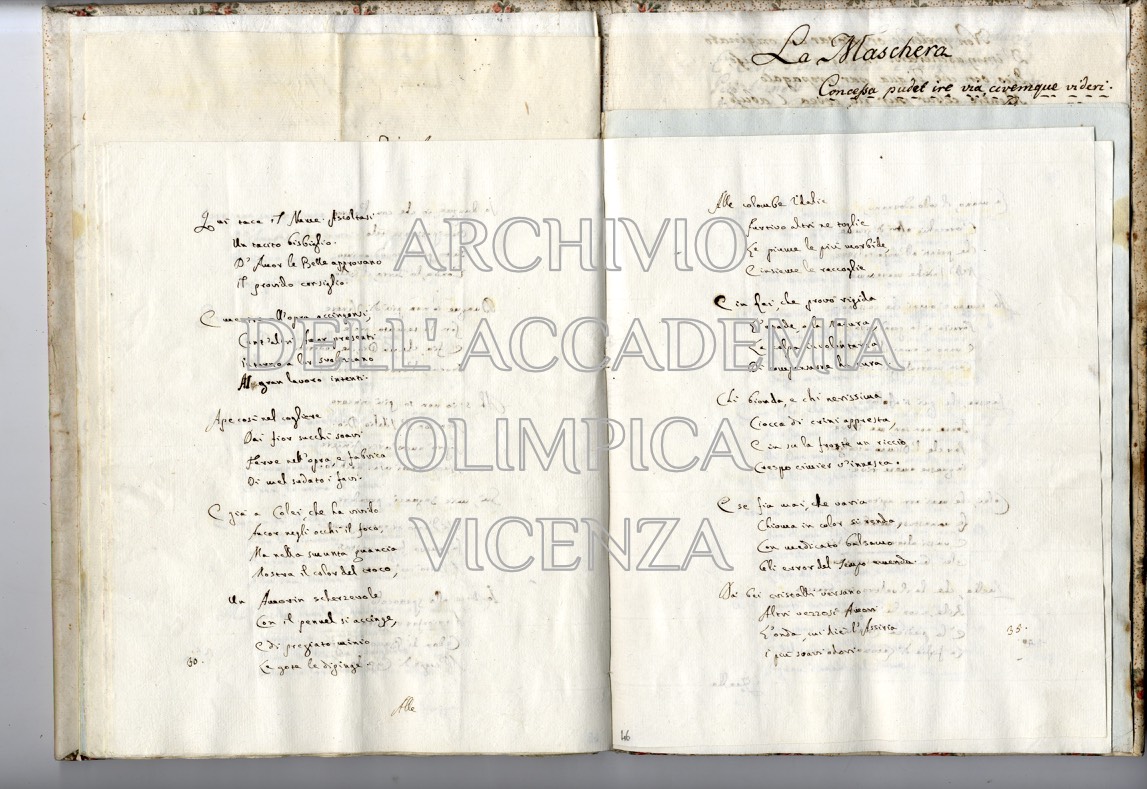 La Maschera
Concessa pudet ire via, civemque videri.
Qui tacque il Nume. Ascoltasi
Un tacito bisbiglio.
D'Amor le Belle approvano
Il provido consiglio.
all'opra accingonsi,
Amor presenti
Intorno a lor svolazzano
Al gran lavoro intenti.
Ape così nel cogliere
Dai fior succhi soavi
Ferve nell'opra, e fabrica
Di mel sodato i favi.
E già a Colei, che ha vivido
Ancor negli occhi il foco,
Ma nella smunta guancia
Mostra il color del croco,
Un Amorin scherzevole
Con il pennel si accinge,
E di pregiato minio
Le gote le dipinge.
30.
Alle
Alle colombe Idalie
Furtivo altri ne toglie
Le piume le più morbide,
E insieme le raccoglie,
E in lei, che provò rigida
la Natura
La colpa involontaria
Di compensare ha cura
Chi bionda, e chi nerissima
Ciocca di crini appresta,
E in su la fronte un riccio
Crespo cimier s'innesta.
E se fia mai, che varia
Chioma in color si renda,
Con medicato balsamo
Gli error del Tempo emenda.
Dai bei cristalli versano
Altri vezzosi Amori
L'onda, cui diè l'Assiria
I più soavi odori.
35.
46
ARCHIVIO
DELL'ACCADEMIA
OLIMPICA
VICENZA